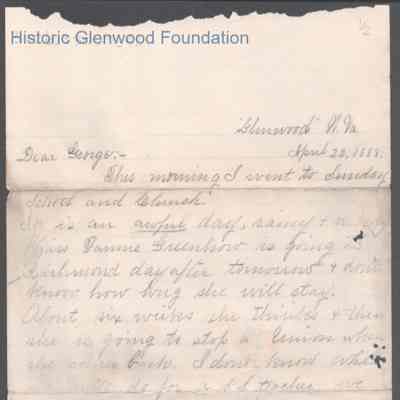 1/2
Historic Glenwood Foundation
"Glenwood" W. Va
April 22, 1888.
Dear George:-
This morning I went to Sunday
School and Church.
It is an awful day, rainy +
Miss Fannie Greenhow is going to
Richmond day after tomorrow + don't
know how long she will stay.
About six weeks she thinks + then
she is going to stop at Union when
she comes back. I don't know what
do for a S. S. teacher. we